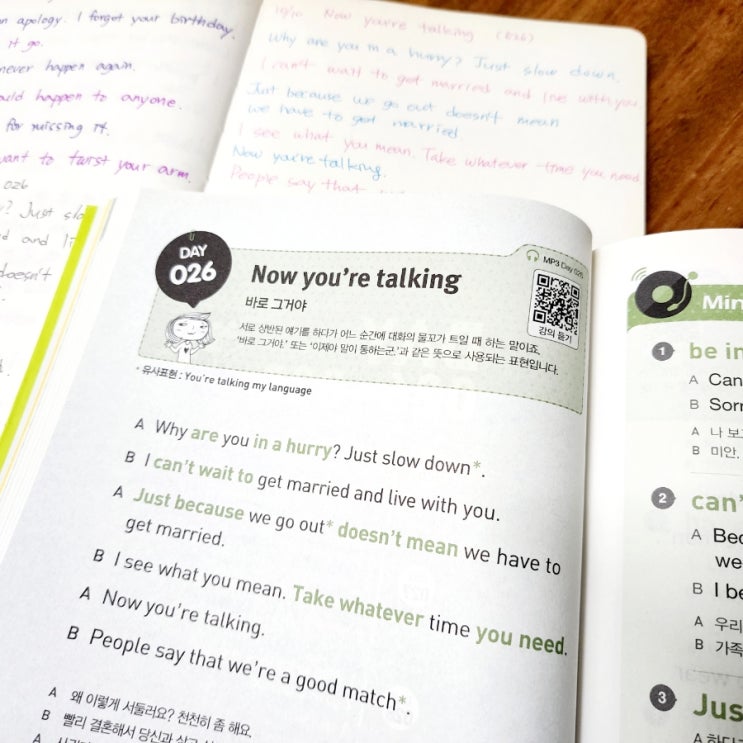 n apology. I forgot your birthday.
it go.
never happen again.
ould happen to anyone.
for missing it.
want to twist your arm.
026
? Just slo
d and li
doesn't
Now you're talking (026)
Why are you in a hurry? Just slow down.
I can't wait to get married and live with you.
Just because we go out doesn't mean
we have to get married
I see what you mean. Take whatever time you need
Now you're talking.
People say that
DAY
026
Now you're talking
바로 그거야
MP3 Day 026
강의 듣기
서로 상반된 얘기를 하다가 어느 순간에 대화의 물꼬가 트일 때 하는 말이죠.
'바로 그거야.' 또는 '이제야 말이 통하는군.'과 같은 뜻으로 사용되는 표현입니다.
* 유사표현 : You're talking my language
A Why are you in a hurry? Just slow down*.
B I can't wait to get married and live with you.
A Just because we go out* doesn't mean we have to
get married.
B I see what you mean. Take whatever time you need.
A Now you're talking.
B People say that we're a good match*.
A 왜 이렇게 서둘러요? 천천히 좀 해요.
B 빨리 결혼해서 당신과 살고
A
Min
1 be in
A Can
B Sorr
A 나 보
B 미안.
2 can'
A Bec
we
B I be
A 우리
B 가족
3 Jus
A 하다